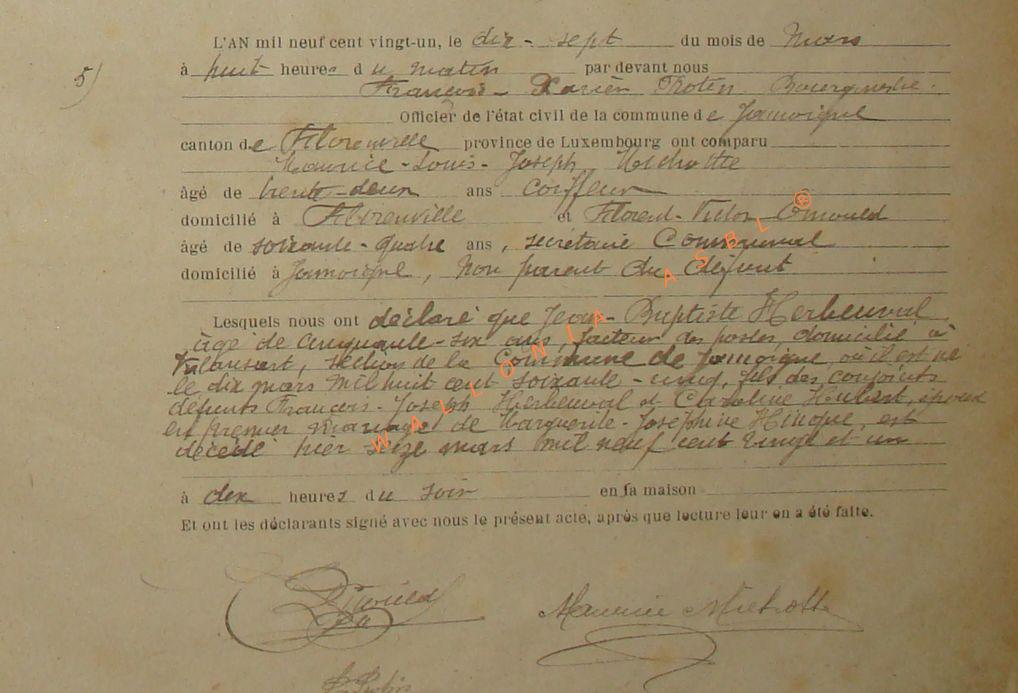 L'AN mil neuf cent vingt-un, le dix-sept du mois de Mars
5) à huit heures du matin par devant nous
François-Xavier Protin Bourgmestre.
Officier de l'état civil de la commune de Jamoigne
canton de Florenville province de Luxembourg ont comparu
Maurice-Louis-Joseph Michotte
âgé de trente-deux ans coiffeur
domicilié à Florenville et Florent-Victor
âgé de soixante-quatre ans, secrétaire Communal
domicilié à Jamoigne, non parent du défunt
Lesquels nous ont déclaré que Jean-Baptiste Herbeuval
âgé de cinquante-six ans, facteur des postes, domicilié à
Valansart, section de la Commune de Jamoigne, où il est né
le dix mars mil huit cent soixante-cinq, fils des conjoints
défunts François-Joseph Herbeuval et Caroline Hubert, époux
en premier mariage de Marguerite-Joséphine, est
décédé hier seize mars mil neuf cent vingt et un
à dix heures du soir en sa maison
Et ont les déclarants signé avec nous le présent acte, après que lecture leur en a été faite.
Maurice Michotte
WALLONIA ASBL ®